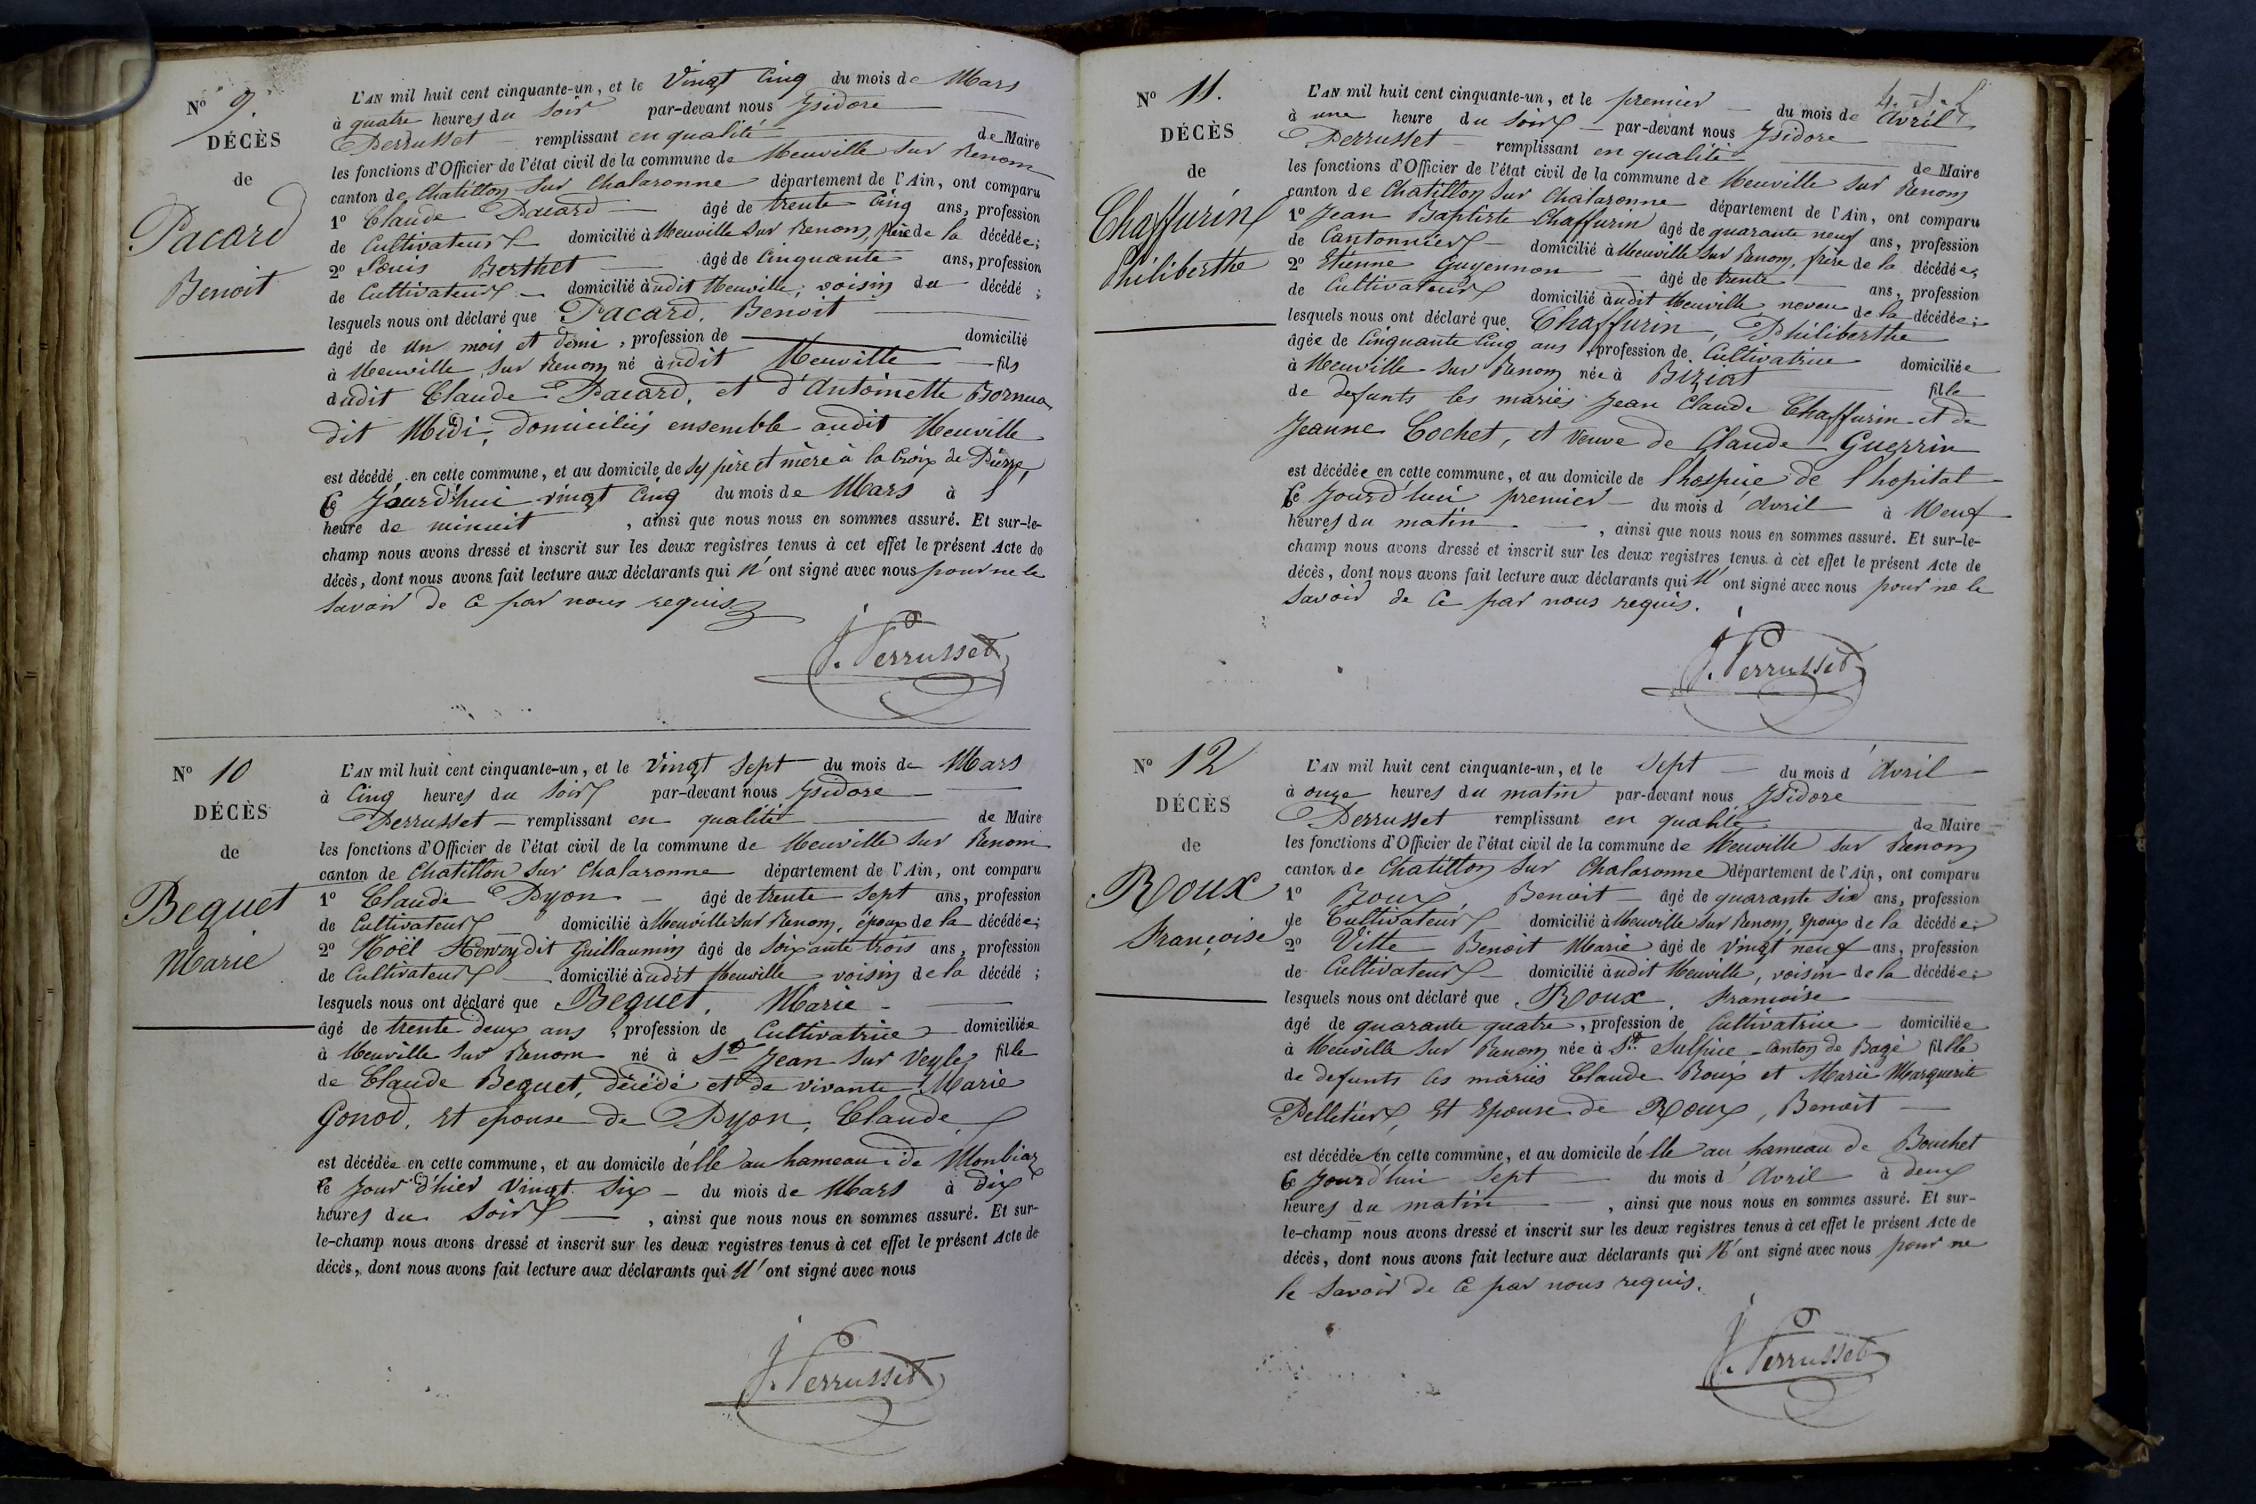 N° 9.
DÉCÈS
de
Pacard
Benoit
L'AN mil huit cent cinquante-un, et le Vingt Cinq du mois de Mars
à quatre heures du Soir par-devant nous Ysidore
Perrusset remplissant en qualité de Maire
les fonctions d'Officier de l'état civil de la commune de Neuville sur Renom
canton de Chatillon sur Chalaronne département de l'Ain, ont comparu
1° Claude Pacard âgé de trente Cinq ans, profession
de Cultivateur domicilié à Neuville sur Renom, père de la décédée;
2° Louis Berthet âgé de Cinquante ans, profession
de Cultivateur domicilié audit Neuville; voisin du décédé;
lesquels nous ont déclaré que Pacard, Benoit
âgé de Un mois et demi, profession de domicilié
à Neuville sur Renom né audit Neuville fils
dudit Claude Pacard, et d'Antoinette
dit Midi, domiciliés ensemble audit Neuville
est décédé en cette commune, et au domicile de ses père et mère à la Croix de Pierre,
Ce Jourd'hui vingt Cinq du mois de Mars à
heure de minuit, ainsi que nous nous en sommes assuré. Et sur-le-
champ nous avons dressé et inscrit sur les deux registres tenus à cet effet le présent Acte de
décès, dont nous avons fait lecture aux déclarants qui N'ont signé avec nous pour ne le
Savoir de Ce par nous requis
J. Perrusset
N° 10
DÉCÈS
de
Bequet
Marie
L'AN mil huit cent cinquante-un, et le Vingt Sept du mois de Mars
à Cinq heures du Soir par-devant nous Ysidore
Perrusset remplissant en qualité de Maire
les fonctions d'Officier de l'état civil de la commune de Neuville sur Renom
canton de Chatillon sur Chalaronne département de l'Ain, ont comparu
1° Claude Dyon âgé de trente Sept ans, profession
de Cultivateur domicilié à Neuville sur Renom, époux de la décédée;
2° Noël dit Guillaumin âgé de Soixante trois ans, profession
de Cultivateur domicilié audit Neuville voisin de la décédé;
lesquels nous ont déclaré que Bequet, Marie
âgé de trente deux ans, profession de Cultivatrice domiciliée
à Neuville sur Renom né à St Jean sur Veyle fille
de Claude Bequet, décédé et de vivante Marie
Gonod, et epouse de Dyon, Claude
est décédée en cette commune, et au domicile d'elle au hameau de Monbiaz
le Jour d'hier Vingt Six du mois de Mars à dix
heures du Soir, ainsi que nous nous en sommes assuré. Et sur-
le-champ nous avons dressé et inscrit sur les deux registres tenus à cet effet le présent Acte de
décès, dont nous avons fait lecture aux déclarants qui N'ont signé avec nous
J. Perrusset
N° 11.
DÉCÈS
de
Chaffurin
Philiberthe
L'AN mil huit cent cinquante-un, et le premier du mois de Avril
à une heure du Soir par-devant nous Ysidore
Perrusset remplissant en qualité de Maire
les fonctions d'Officier de l'état civil de la commune de Neuville sur Renom
canton de Chatillon sur Chalaronne département de l'Ain, ont comparu
1° Jean Baptiste Chaffurin âgé de quarante neuf ans, profession
de Cantonnier domicilié à Neuville sur Renom, frère de la décédée,
2° Etienne Guyennon âgé de trente ans, profession
de Cultivateur domicilié audit Neuville neveu de la décédée;
lesquels nous ont déclaré que Chaffurin, Philiberthe
âgée de Cinquante Cinq ans, profession de Cultivatrice domiciliée
à Neuville sur Renom née à Biziat fille
de defunts les mariés Jean Claude Chaffurin et de
Jeanne Cochet, et veuve de Claude Guerrin
est décédée en cette commune, et au domicile de l'hospice de l'hopital
Ce Jourd'hui premier du mois d'Avril à Neuf
heures du matin, ainsi que nous nous en sommes assuré. Et sur-le-
champ nous avons dressé et inscrit sur les deux registres tenus à cet effet le présent Acte de
décès, dont nous avons fait lecture aux déclarants qui N'ont signé avec nous pour ne le
Savoir de Ce par nous requis.
J. Perrusset
N° 12
DÉCÈS
de
Roux
Françoise
L'AN mil huit cent cinquante-un, et le Sept du mois d'Avril
à onze heures du matin par-devant nous Ysidore
Perrusset remplissant en qualité de Maire
les fonctions d'Officier de l'état civil de la commune de Neuville sur Renom
canton de Chatillon sur Chalaronne département de l'Ain, ont comparu
1° Roux, Benoit âgé de quarante six ans, profession
de Cultivateur domicilié à Neuville sur Renom, Epoux de la décédée;
2° Vitte Benoit Marie âgé de Vingt neuf ans, profession
de Cultivateur domicilié audit Neuville, voisin de la décédée;
lesquels nous ont déclaré que Roux, Françoise
âgé de quarante quatre, profession de Cultivatrice domiciliée
à Neuville sur Renom née à St Sulpice Canton de Bagé fille
de defunts les mariés Claude Roux et Marie Marguerite
Pelletier, et Epouse de Roux, Benoit
est décédée en cette commune, et au domicile d'elle au hameau de Bouchet
Ce Jourd'hui Sept du mois d'Avril à deux
heures du matin, ainsi que nous nous en sommes assuré. Et sur-
le-champ nous avons dressé et inscrit sur les deux registres tenus à cet effet le présent Acte de
décès, dont nous avons fait lecture aux déclarants qui N'ont signé avec nous pour ne
le Savoir de Ce par nous requis.
J. Perrusset